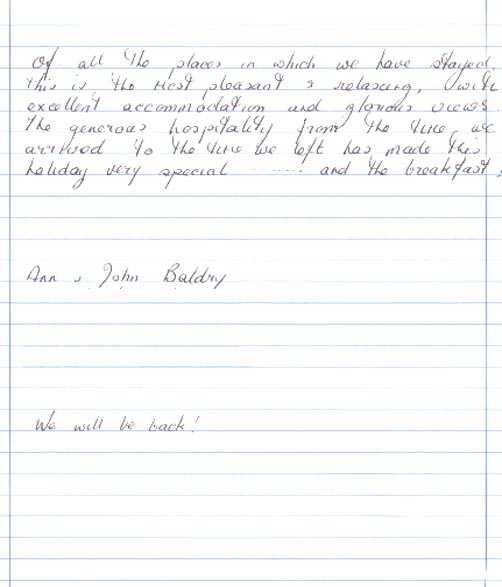 Of all the places in which we have stayed,
this is the most pleasant & relaxing, with
excellent accommodation and glorious views.
The generous hospitality from the time we
arrived to the time we left has made this
holiday very special ........ and the breakfast
Ann & John Baldry
We will be back!